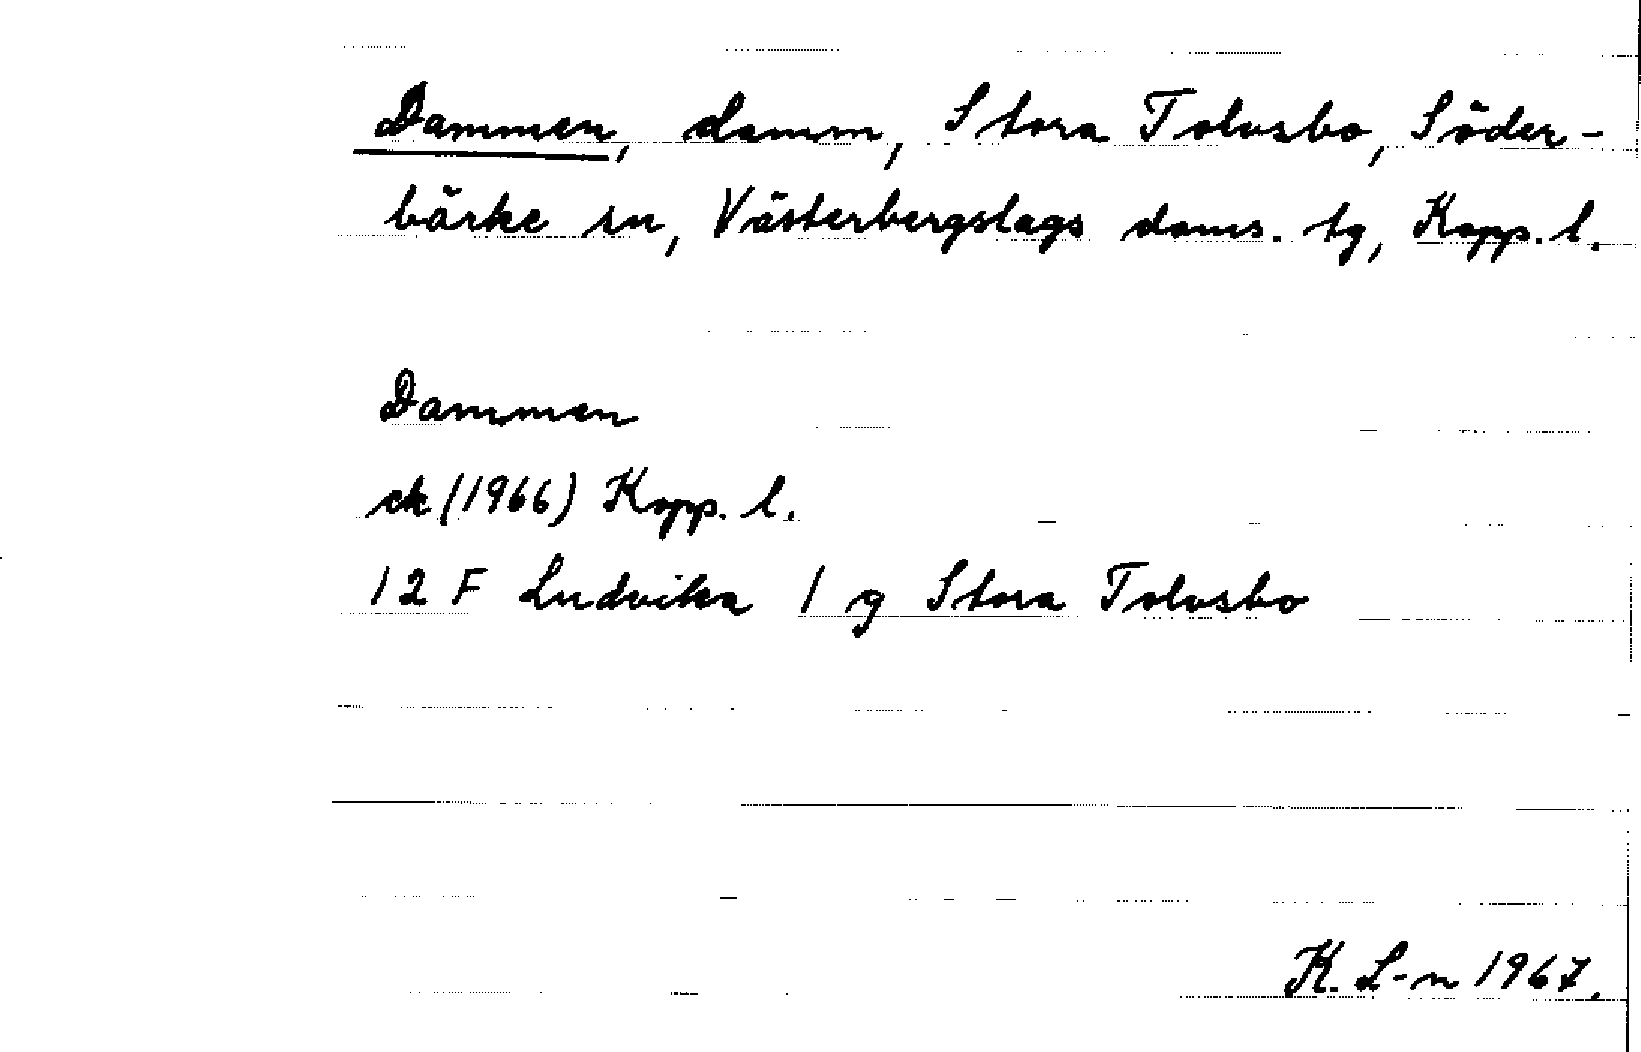 Dammen, damm, Stora Tolvsbo, Söder-
bärke sn, Västerbergslags doms. tg, Kopp. l.
Dammen
ek (1966) Kopp. l.
12 F Ludvika 1 g Stora Tolvsbo
K. L-n 1967.